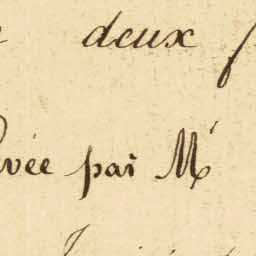 deux
vée par Mr